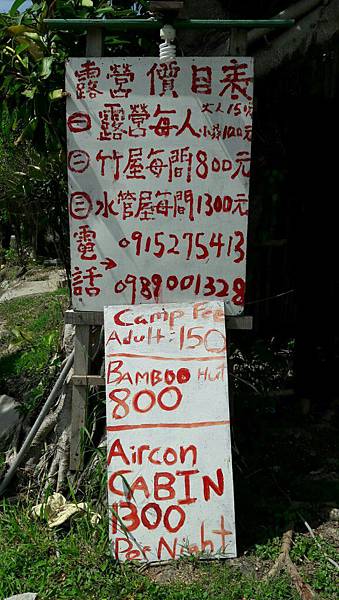 露營價目表
㊀露營每人 大人150元 小孩100元
㊁竹屋每間800元
㊂水管屋每間1300元
電話→0915275413
0989001328
Camp Fee
Adult:150
BAMBOO Hut
800
Aircon
CABIN
1300
Per Night